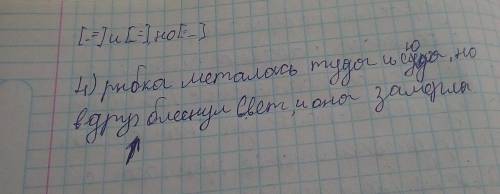 [-=] и [=] но [=-]
4) рыбка металась туда и сюда, но
вдруг блеснул свет, и она замерла